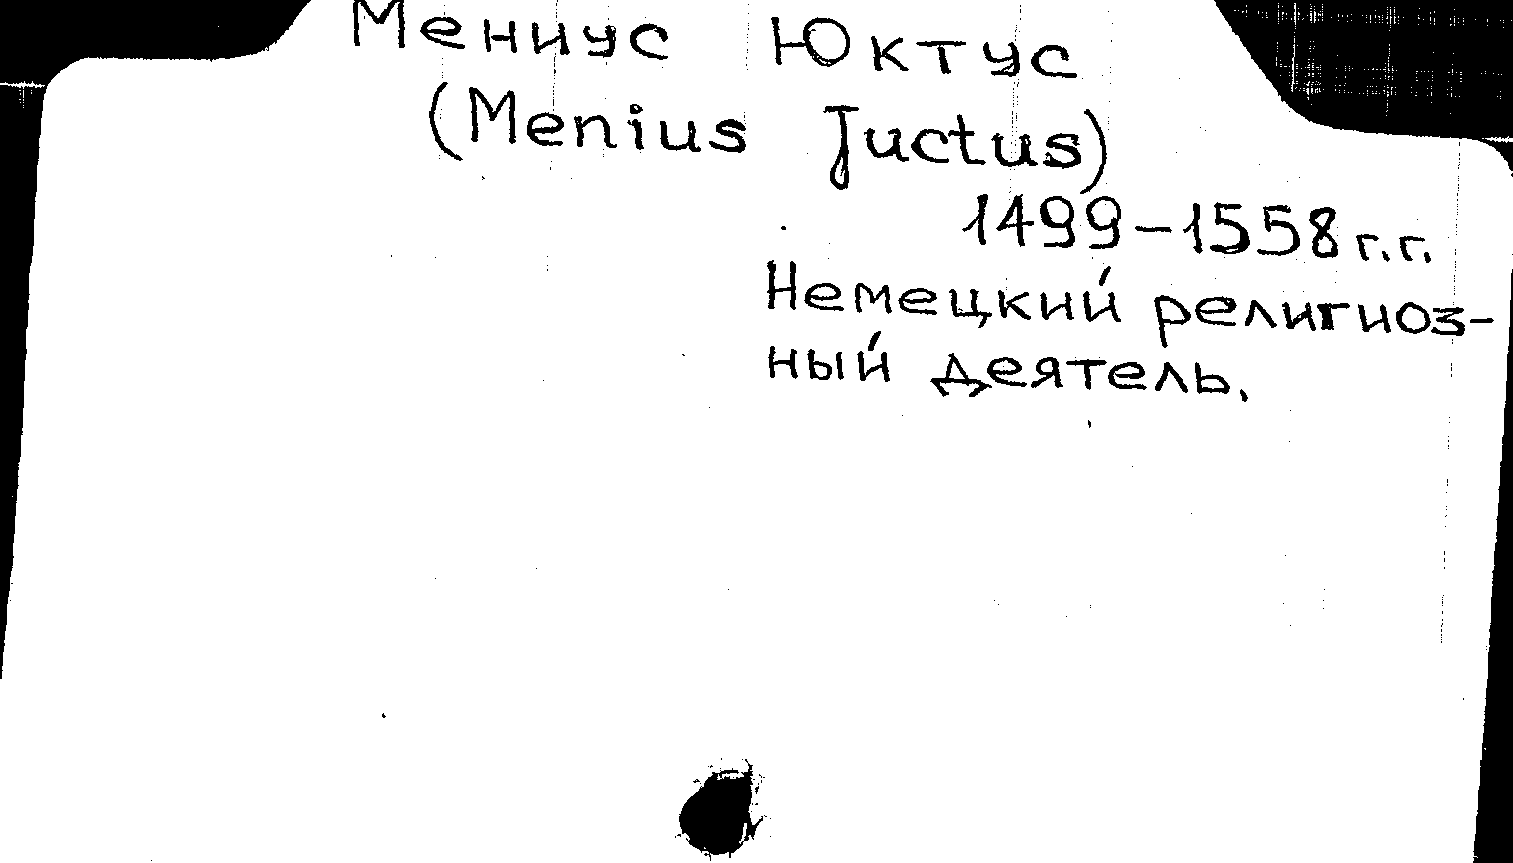 Мениус Юктус
(Menius Juctus)
1499-1558 г.г.
Немецкий религиоз-
ный деятель.